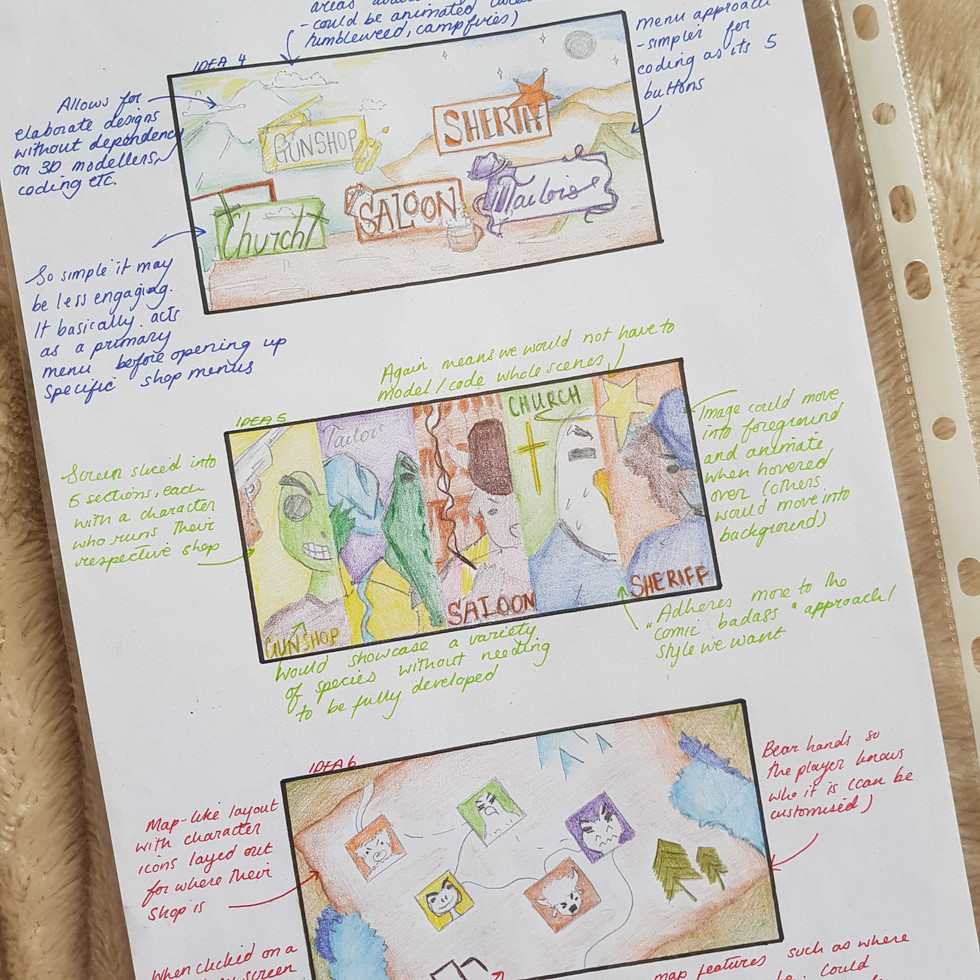 - could be animated
tumbleweed, campfires)
menu approach
- simpler for
coding as its 5
buttons
IDEA 4
Allows for
elaborate designs
without dependency
on 3D modellers,
coding etc.
GUNSHOP
SHERIFF
Church
SALOON
Tailors
So simple it may
be less engaging.
It basically acts
as a primary
menu before opening up
specific shop menus
Again means we would not have to
model/code whole scenes
IDEA 5
Screen sliced into
5 sections, each
with a character
who runs their
respective shop
Tailors
CHURCH
GUNSHOP
SALOON
SHERIFF
Image could move
into foreground
and animate
when hovered
over (others
would move into
background)
Would showcase a variety
of species without needing
to be fully developed
Adheres more to the
"comic badass" approach/
style we want
IDEA 6
Map-like layout
with character
icons layed out
for where their
shop is
Bear hands so
the player knows
who it is (can be
customised)
When clicked on a
screen
map features such as where
could